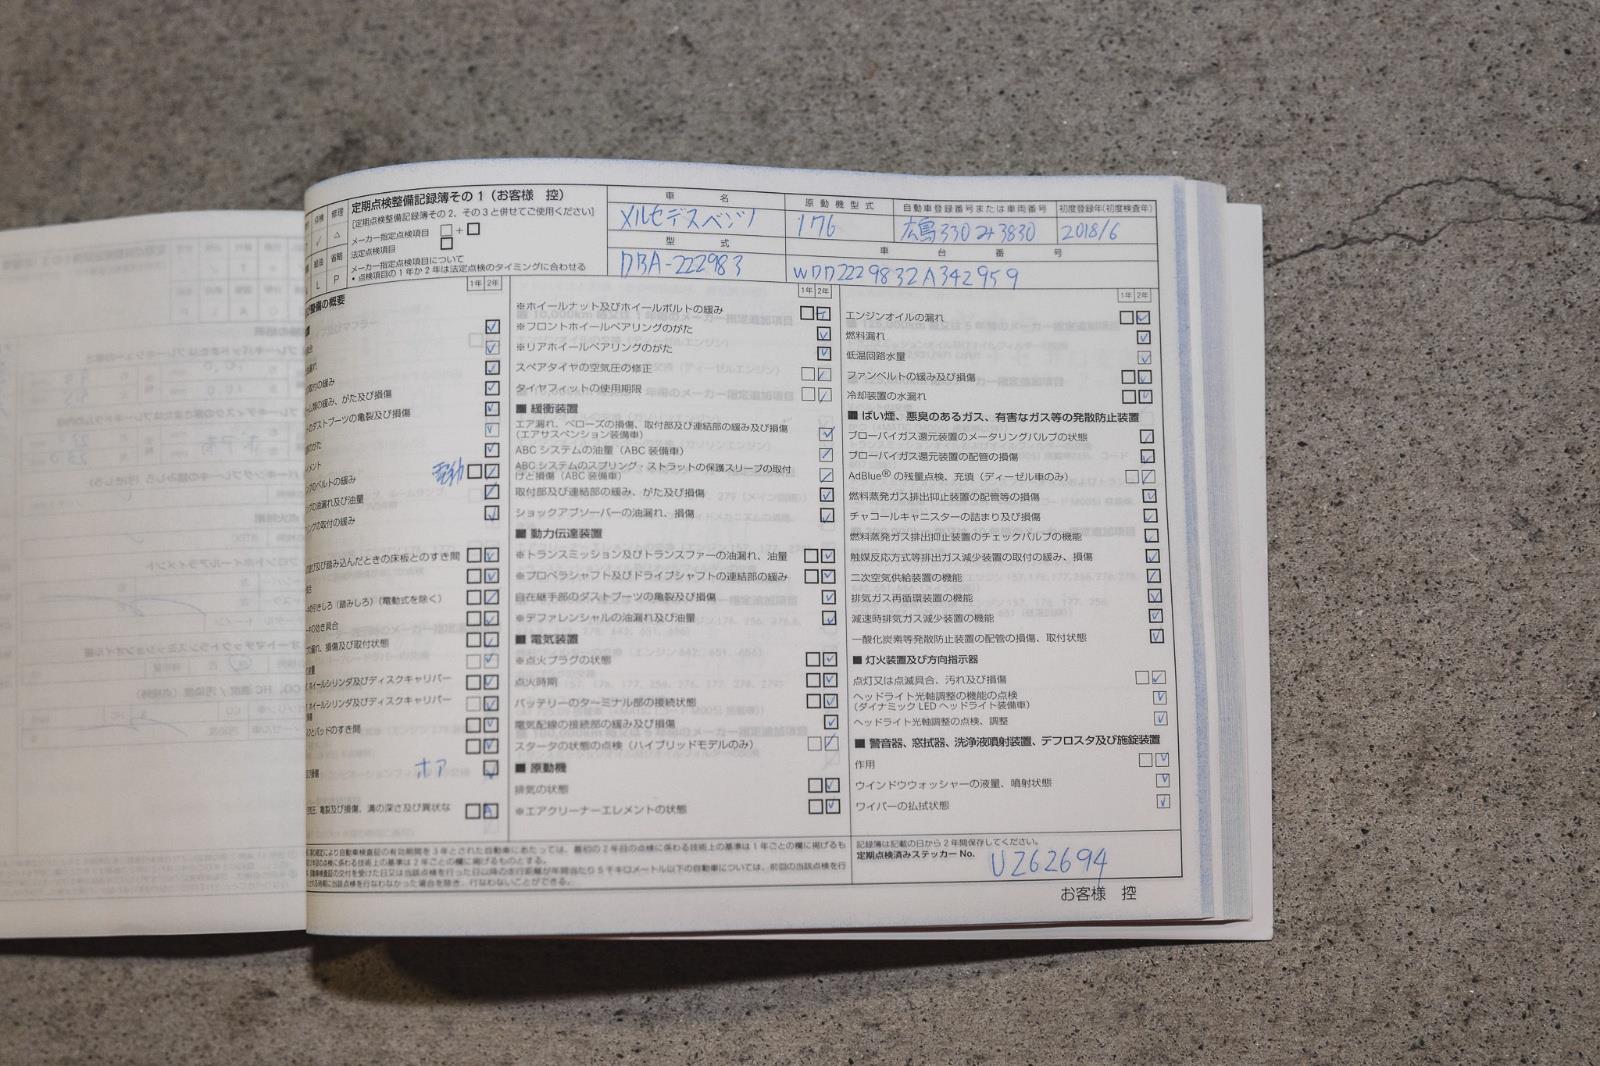 点検
修理
✓
△
給油
省略
L
P
定期点検整備記録簿その1（お客様 控）
[定期点検整備記録簿その2、その3と併せてご使用ください]
メーカー指定点検項目 □+□
法定点検項目 □
メーカー指定点検項目について
• 点検項目の1年か2年は法定点検のタイミングに合わせる
車 名
メルセデスベンツ
型 式
DBA-222983
原動機型式
176
自動車登録番号または車両番号
広島330 み3830
初度登録年(初度検査年)
2018/6
車 台 番 号
WDD2229832A342959
整備の概要
1年 2年
取付の緩み
ム類の緩み、がた及び損傷
のダストブーツの亀裂及び損傷
のがた
メント
電動
のベルトの緩み
の油漏れ及び油量
の取付の緩み
及び踏み込んだときの床板とのすき間
の引きしろ（踏みしろ）（電動式を除く）
の効き具合
漏れ、損傷及び取付状態
ホイールシリンダ及びディスクキャリパー
ホイールシリンダ及びディスクキャリパー
とパッドのすき間
ホア
亀裂及び損傷、溝の深さ及び異状な
1年 2年
※ホイールナット及びホイールボルトの緩み
※フロントホイールベアリングのがた
※リアホイールベアリングのがた
スペアタイヤの空気圧の修正
タイヤフィットの使用期限
■ 緩衝装置
エア漏れ、ベローズの損傷、取付部及び連結部の緩み及び損傷
（エアサスペンション装備車）
ABC システムの油量（ABC 装備車）
ABC システムのスプリング・ストラットの保護スリーブの取付
けと損傷（ABC 装備車）
取付部及び連結部の緩み、がた及び損傷
ショックアブソーバーの油漏れ、損傷
■ 動力伝達装置
※トランスミッション及びトランスファーの油漏れ、油量
※プロペラシャフト及びドライブシャフトの連結部の緩み
自在継手部のダストブーツの亀裂及び損傷
※デファレンシャルの油漏れ及び油量
■ 電気装置
※点火プラグの状態
点火時期
バッテリーのターミナル部の接続状態
電気配線の接続部の緩み及び損傷
スタータの状態の点検（ハイブリッドモデルのみ）
■ 原動機
排気の状態
※エアクリーナーエレメントの状態
1年 2年
エンジンオイルの漏れ
燃料漏れ
低温回路水量
ファンベルトの緩み及び損傷
冷却装置の水漏れ
■ ばい煙、悪臭のあるガス、有害なガス等の発散防止装置
ブローバイガス還元装置のメータリングバルブの状態
ブローバイガス還元装置の配管の損傷
AdBlue®の残量点検、充填（ディーゼル車のみ）
燃料蒸発ガス排出抑止装置の配管等の損傷
チャコールキャニスターの詰まり及び損傷
燃料蒸発ガス排出抑止装置のチェックバルブの機能
触媒反応方式等排出ガス減少装置の取付の緩み、損傷
二次空気供給装置の機能
排気ガス再循環装置の機能
減速時排気ガス減少装置の機能
一酸化炭素等発散防止装置の配管の損傷、取付状態
■ 灯火装置及び方向指示器
点灯又は点滅具合、汚れ及び損傷
ヘッドライト光軸調整の機能の点検
（ダイナミック LED ヘッドライト装備車）
ヘッドライト光軸調整の点検、調整
■ 警音器、窓拭器、洗浄液噴射装置、デフロスタ及び施錠装置
作用
ウインドウウォッシャーの液量、噴射状態
ワイパーの払拭状態
の規定により自動車検査証の有効期間を3年とされた自動車にあたっては、最初の2年目の点検に係わる技術上の基準は1年ごとの欄に掲げるも
の点検に係わる技術上の基準は2年ごとの欄に掲げるものとする。
自動車検査証の交付を受けた日又は当該点検を行った日以降の走行距離が年間当たり5千キロメートル以下の自動車については、前回の当該点検を行
とされる時期に当該点検を行なわなかった場合を除き、行なわないことができる。
記録簿は記載の日から2年間保存してください。
定期点検済みステッカー No.
U262694
お客様 控